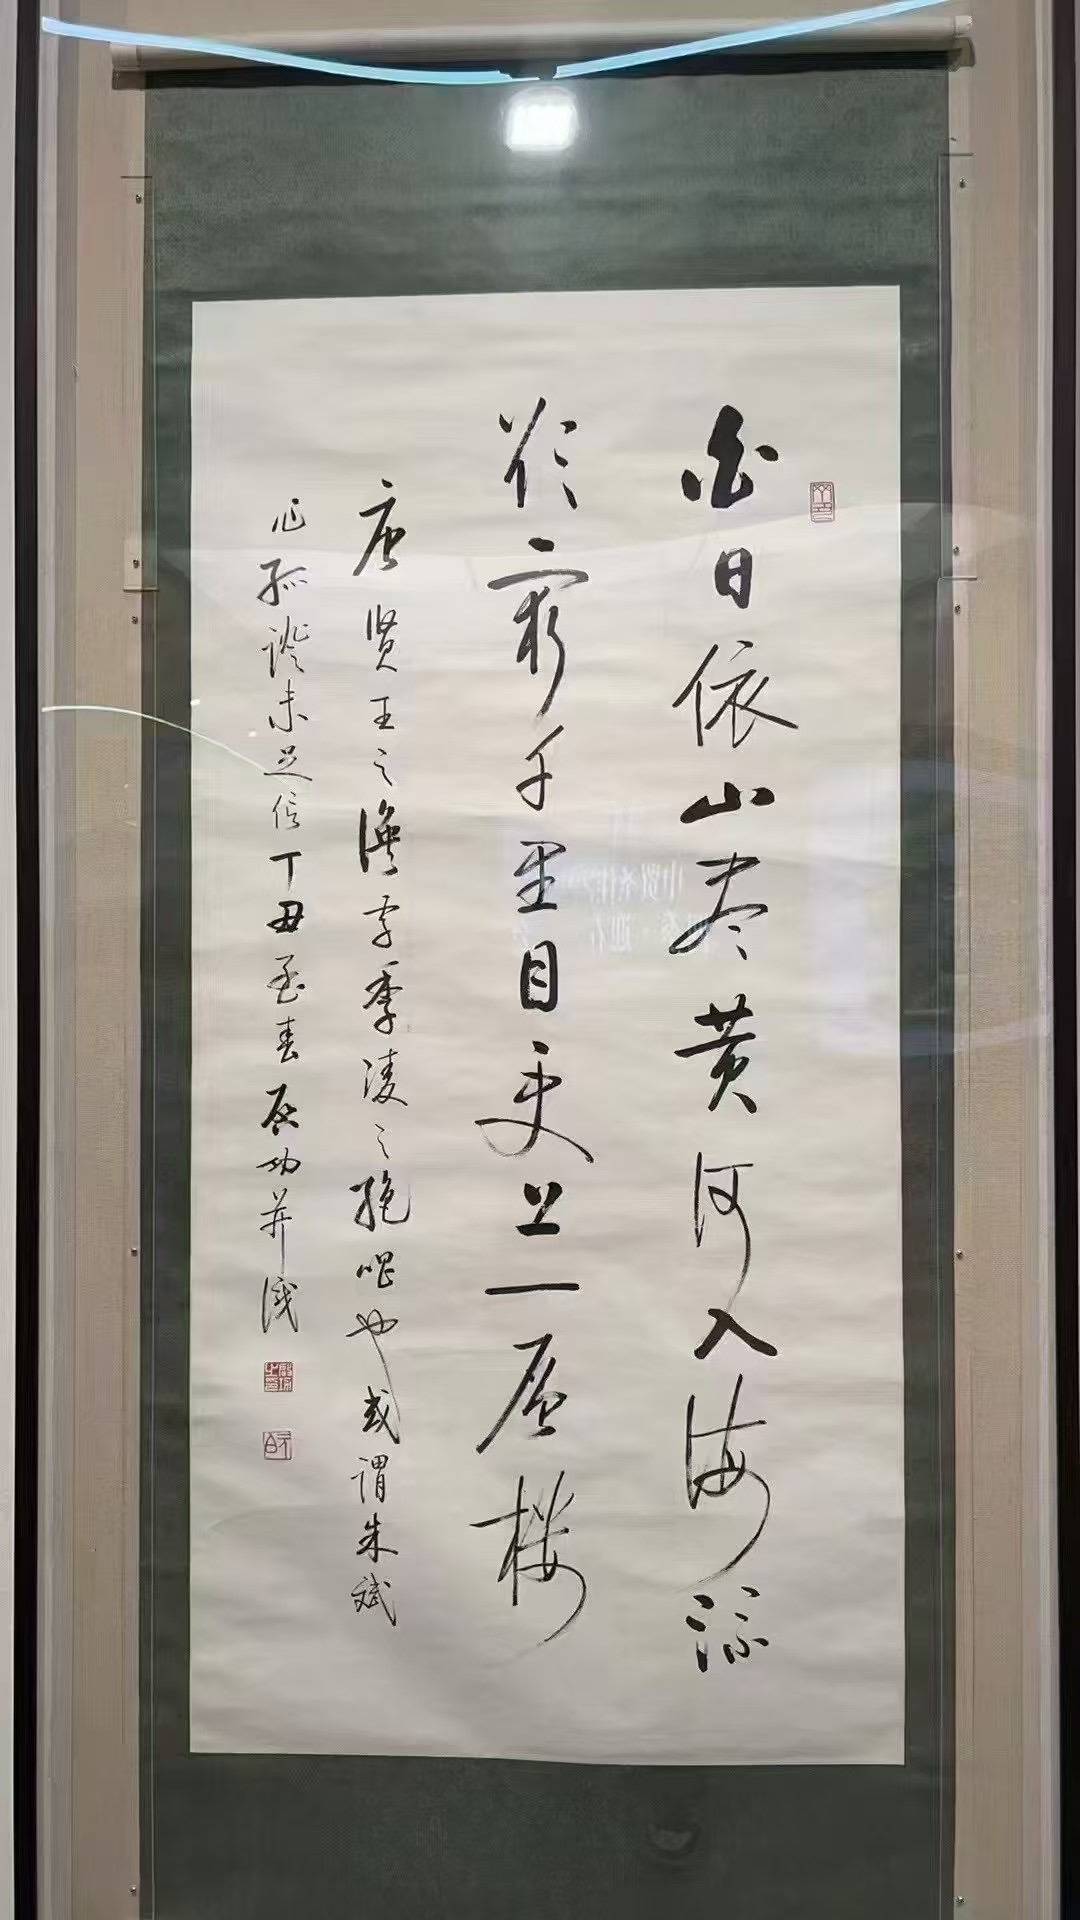 白日依山尽黄河入海流
欲穷千里目更上一层楼
唐贤王之涣字季凌之绝唱也或谓朱斌
作孤证未足信丁丑至春启功并识